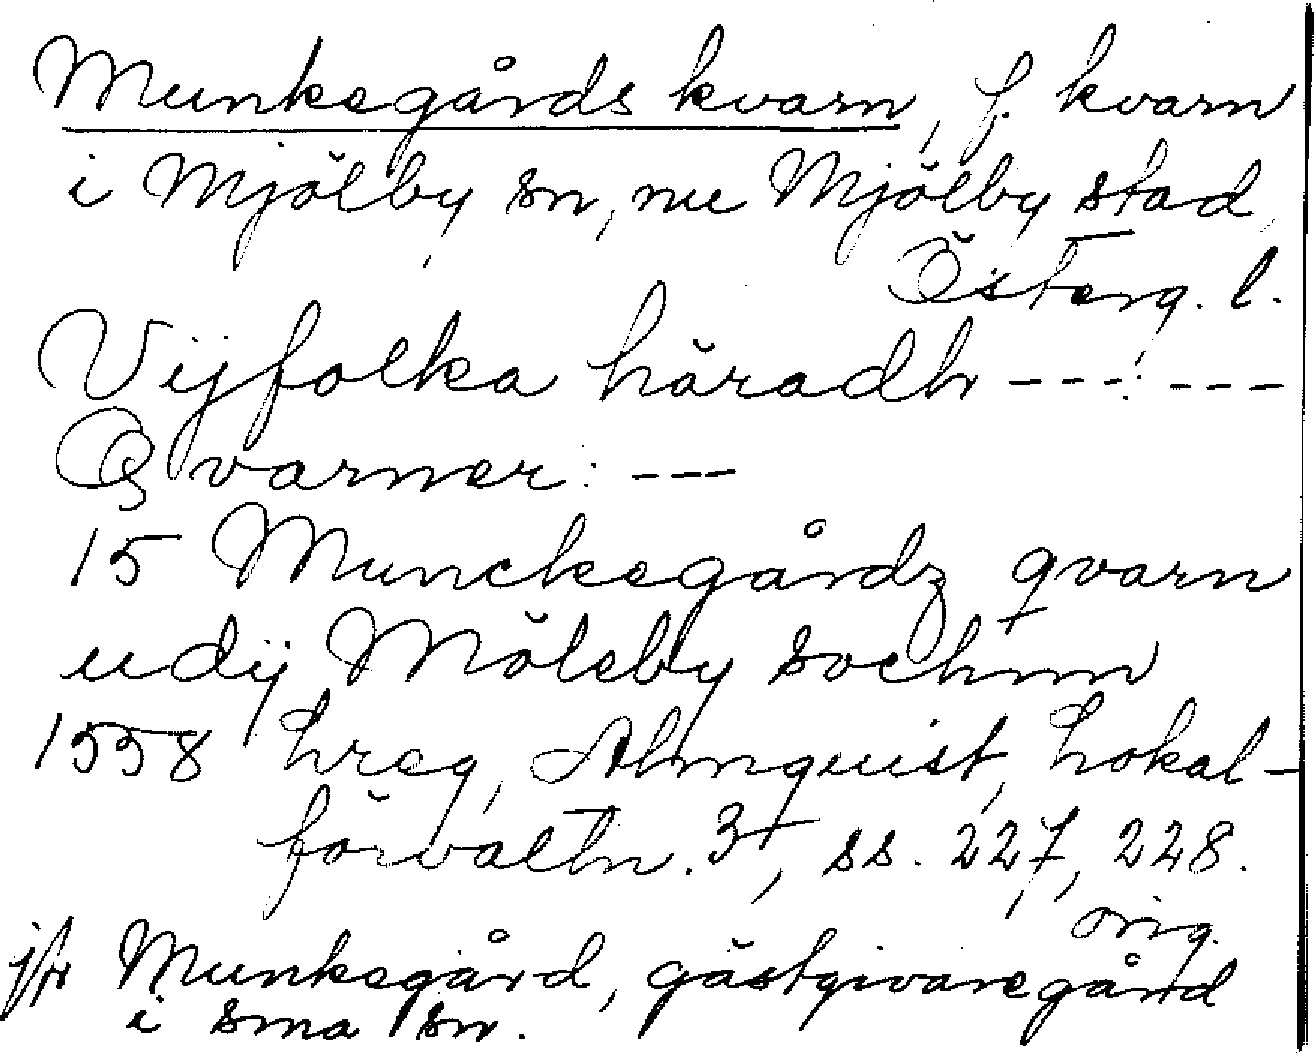 Munkegårds kvarn, f. kvarn
i Mjölby sn, nu Mjölby stad,
Österg. l.
Vijfolka häradh ---:---
Qvarner: ---
15 Munckegårdz qvarn
udij Mölsby sochnn
1558 hreg, Almquist, Lokal-
förvaltn. 3, ss. 227, 228.
orig.
jfr Munkegård, gästgivaregård
i sma sn.